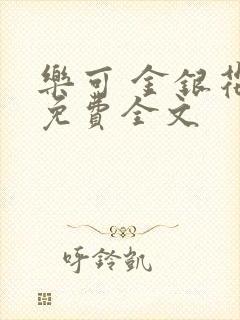 樂可 金銀花
免費全文
呼鈴凱